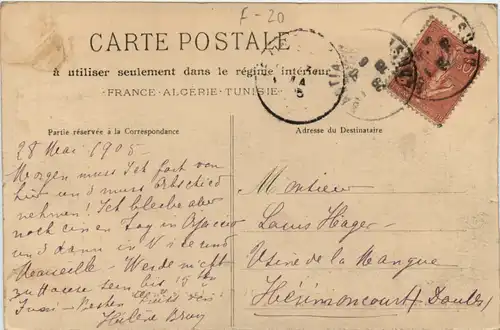 F-20
CARTE POSTALE
à utiliser seulement dans le régime intérieur
-FRANCE-ALGÉRIE-TUNISIE-
Partie réservée à la Correspondance
Adresse du Destinataire
28 Mai 1905-
Morgen muss ich fort von
hier und muss Abschied
nehmen! Ich bleibe aber
noch einen Tag in Ajaccio
und dann in Nice und
Marseille - Werde nicht
zuHause sein bis
Besten
Hélène
Monsieur
Louis Häger-
Usine de la Mangue
Hérimoncourt (Doubs)